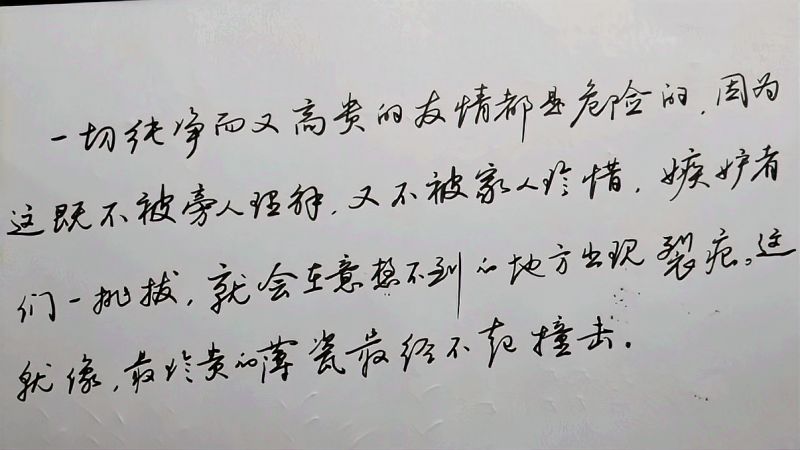 一切纯净而又高贵的友情都是危险的,因为
这既不被旁人理解,又不被家人珍惜,嫉妒者
们一挑拔,就会在意想不到的地方出现裂痕。这
就像,最珍贵的薄瓷最经不起撞击.